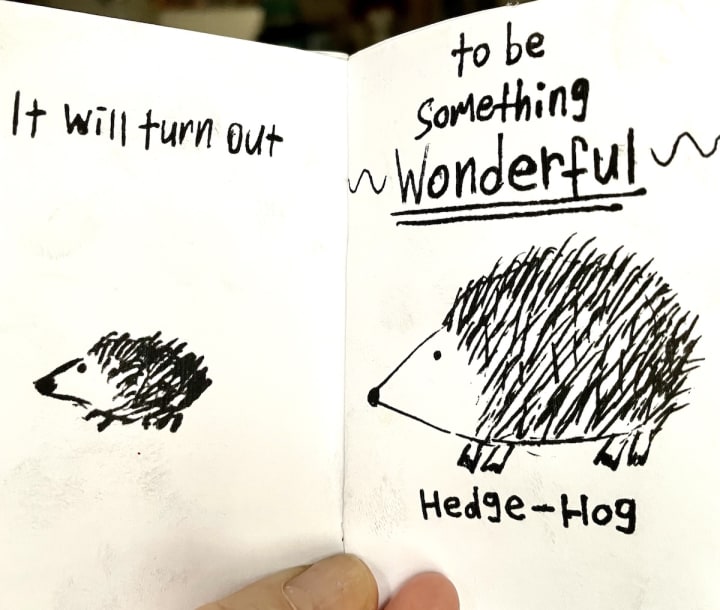 It will turn out
to be
something
Wonderful
Hedge-Hog